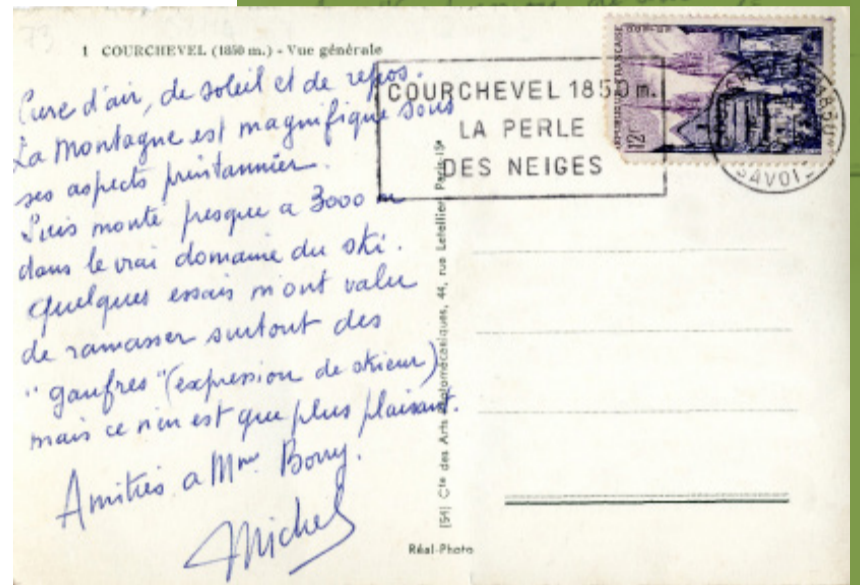 1 COURCHEVEL (1850 m.) - Vue générale
Cure d'air, de soleil et de repos.
La Montagne est magnifique sous
ses aspects printannier.
Suis monté presque a 3000 m
dans le vrai domaine du ski.
Quelques essais m'ont valu
de ramasser surtout des
"gaufres" (expression de skieur)
mais ce n'en est que plus plaisant.
Amitiés a Mme
Michel
COURCHEVEL 1850 m.
LA PERLE
DES NEIGES
12F
[54] Cie des Arts Photomécaniques, 44, rue Letellier, Paris-15e
Réal-Photo
73